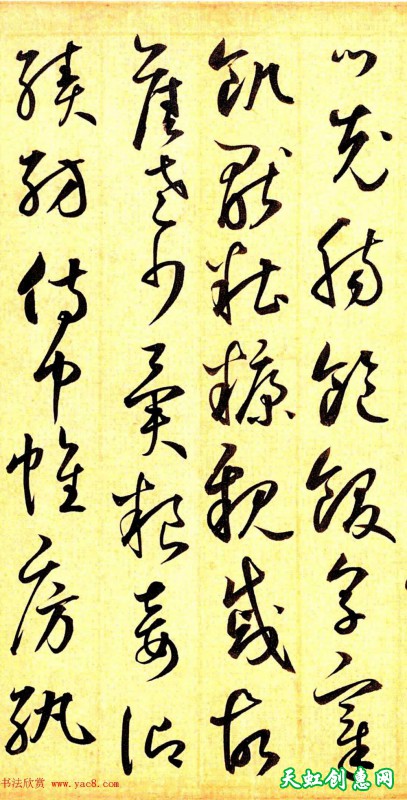 口充腸飽飫烹宰
飢厭糟糠親戚故
舊老少異粮妾御
績紡侍巾帷房紈
书法欣赏 www.yac8.com
天虹创意网